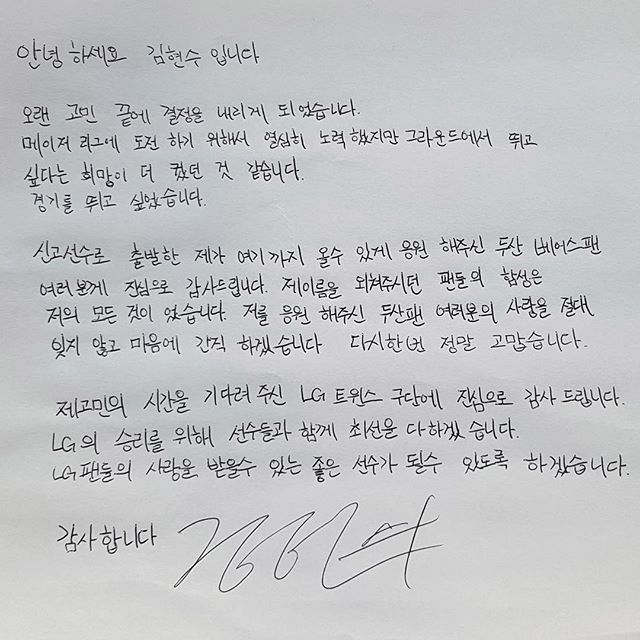 안녕하세요 김현수 입니다
오랜 고민 끝에 결정을 내리게 되었습니다.
메이저 리그에 도전 하기 위해서 열심히 노력했지만 그라운드에서 뛰고
싶다는 희망이 더 컸던 것 같습니다.
경기를 뛰고 싶었습니다.
신고선수로 출발한 제가 여기까지 올수 있게 응원 해주신 두산 베어스팬
여러분께 진심으로 감사드립니다. 제이름을 외쳐주시던 팬들의 함성은
저의 모든 것이 었습니다. 저를 응원 해주신 두산팬 여러분의 사랑을 절대
잊지 않고 마음에 간직 하겠습니다 다시한번 정말 고맙습니다.
제고민의 시간을 기다려 주신 LG 트윈스 구단에 진심으로 감사 드립니다.
LG의 승리를 위해 선수들과 함께 최선을 다하겠 습니다.
LG팬들의 사랑을 받을수 있는 좋은 선수가 될수 있도록 하겠습니다.
감사합니다 김현수